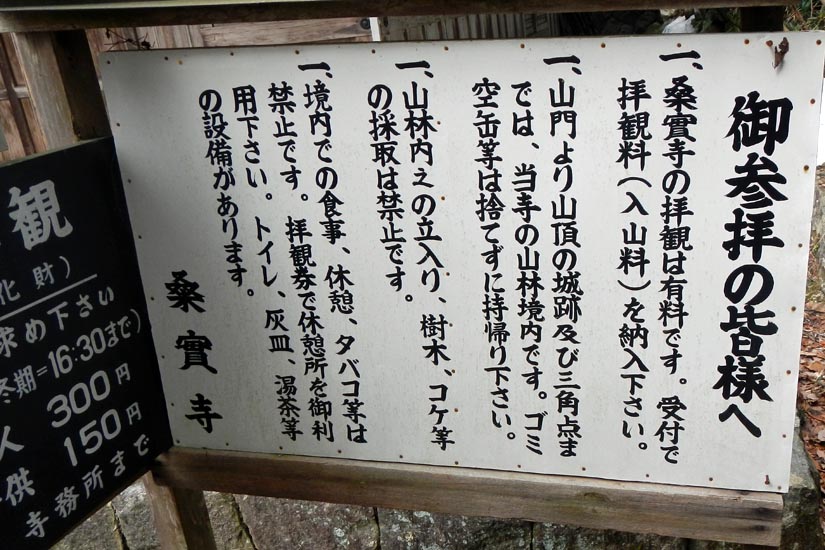 御参拝の皆様へ
一、桑實寺の拝観は有料です。受付で
拝観料(入山料)を納入下さい。
一、山門より山頂の城跡及び三角点ま
では、当寺の山林境内です。ゴミ
空缶等は捨てずに持帰り下さい。
一、山林内えの立入り、樹木、コケ等
の採取は禁止です。
一、境内での食事、休憩、タバコ等は
禁止です。拝観券で休憩所を御利
用下さい。トイレ、灰皿、湯茶等
の設備があります。
桑實寺
観
化財)
求め下さい
冬期=16:30まで)
人 300円
供 150円
寺務所まで